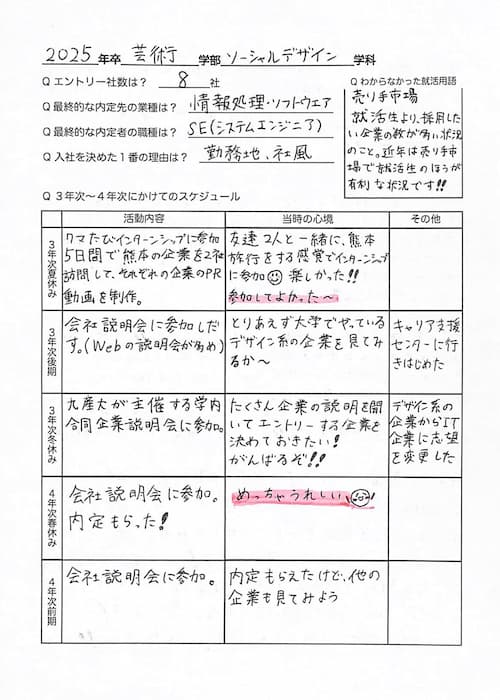 2025 年卒 芸術 学部 ソーシャルデザイン 学科
Q エントリー社数は? 8 社
Q 最終的な内定先の業種は? 情報処理・ソフトウェア
Q 最終的な内定者の職種は? SE(システムエンジニア)
Q 入社を決めた1番の理由は? 勤務地、社風
Q わからなかった就活用語
売り手市場
就活生より、採用した
い企業の数が多い状況
のこと。近年は売り手市
場で就活生のほうが
有利な状況です!!
Q 3年次~4年次にかけてのスケジュール
活動内容 当時の心境 その他
3年次夏休み
クマたびインターンシップに参加
5日間で熊本の企業を2社
訪問して、それぞれの企業のPR
動画を制作。
友達2人と一緒に、熊本
旅行をする感覚でインターンシップ
に参加 楽しかった!!
参加してよかった~
3年次後期
会社説明会に参加しだ
す。(Webの説明会が多め)
とりあえず大学でやっている
デザイン系の企業を見てみ
るか~
キャリア支援
センターに行
きはじめた
3年次冬休み
九産大が主催する学内
合同企業説明会に参加。
たくさん企業の説明を聞
いてエントリーする企業を
決めておきたい!
がんばるぞ!!
デザイン系の
企業からIT
企業に志望
を変更した
4年次春休み
会社説明会に参加。
内定もらった!
めっちゃうれしい
4年次前期
会社説明会に参加。
内定もらえたけど、他の
企業も見てみよう